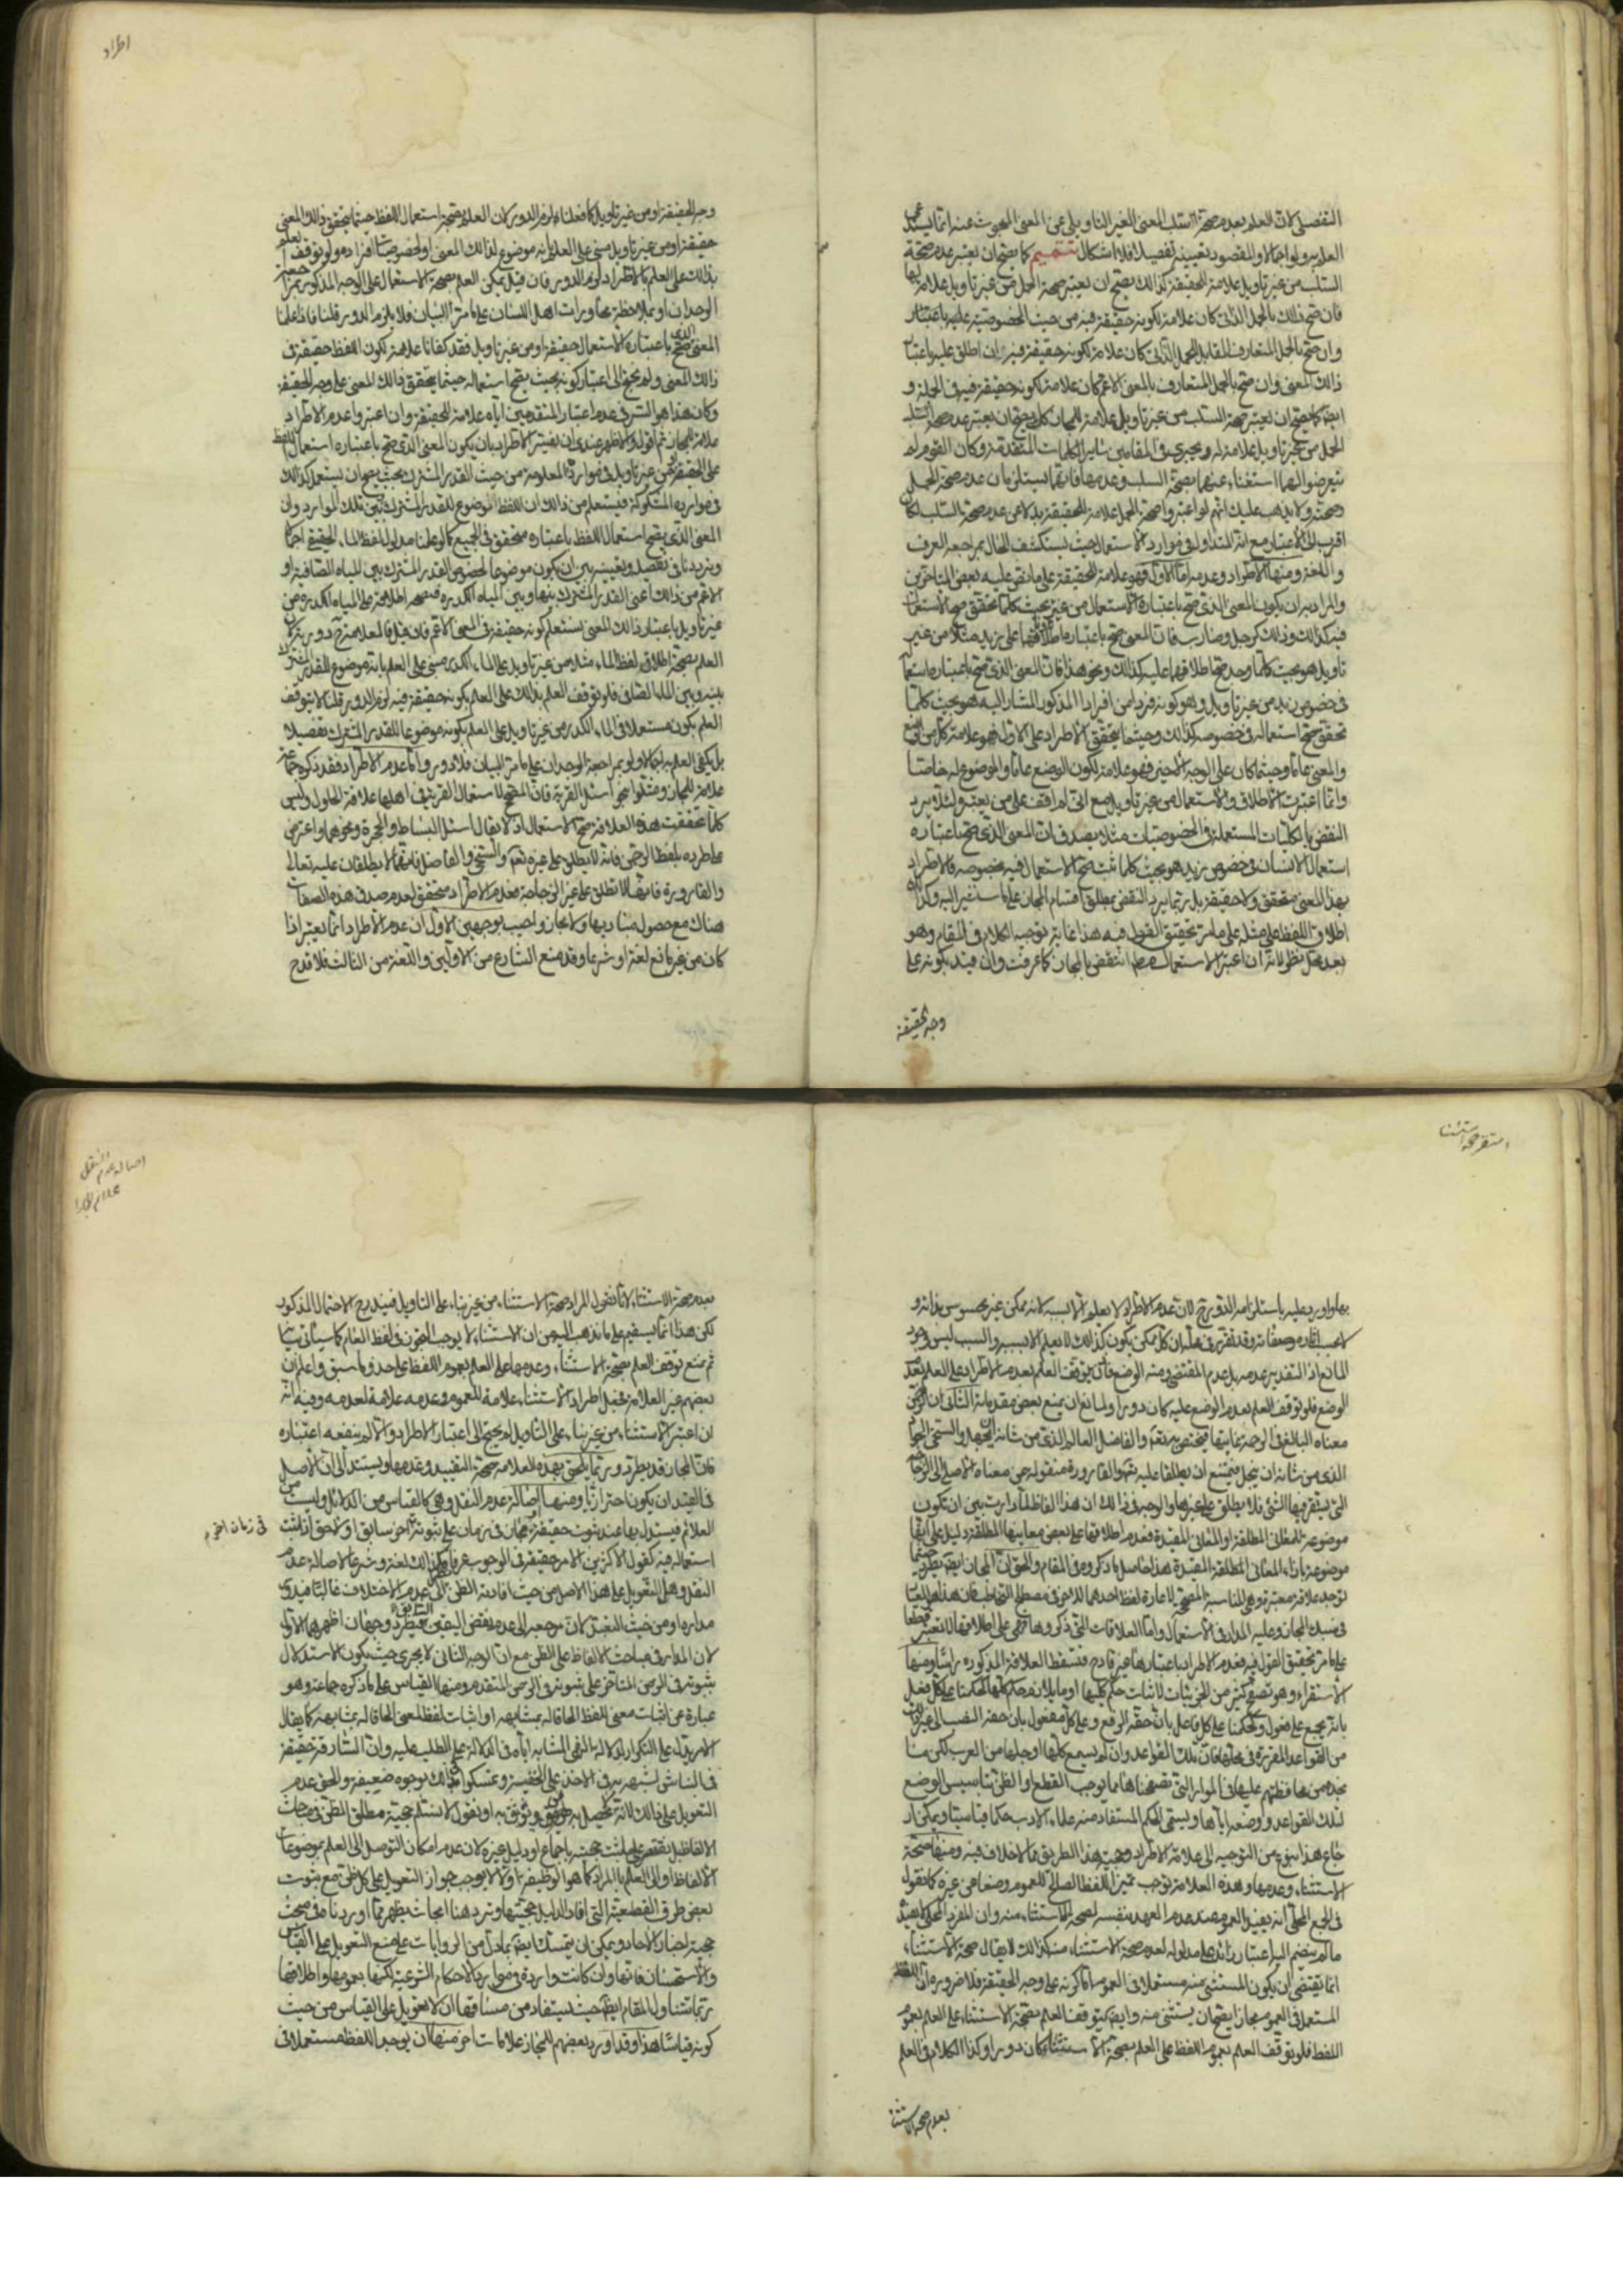 التفصيلى لان العلم بعدم صحة السلب المعنى الغير التاويلى عن المعنى المبحوث عنه انما يستدعى
العلم به ولو اجمالا والمقصود تعيينه تفصيلا فلا اشكال تتميم كما يصح ان يعتبر عدم صحة
السلب من غير تاويل علامة للحقيقة كذلك يصح ان يعتبر صحة الحمل من غير تاويل علامة لها
فان صح ذلك بالحمل الذاتى كان علامة لكونه حقيقة فيه من حيث الخصوصية عليه باعتبار
وان صح بالحمل المتعارف المقابل للحمل الذاتى كان علامة لكونه حقيقة فيه ان اطلق عليه باعتبار
ذلك المعنى وان صح بالحمل المتعارف بالمعنى الاعم كان علامة لكونه حقيقة فيه فى الجملة و
ايضا كما يصح ان يعتبر صحة السلب من غير تاويل علامة للمجاز كذلك يصح ان يعتبر عدم صحة
الحمل من غير تاويل علامة له ويجرى فى المقامين ساير الكلمات المتقدمة وكان القوم لم
يتعرضوا لهما استغناء عنهما بصحة السلب وعدمها فانهما يستلزمان عدم صحة الحمل
وصحته ولا يذهب عليك انهم لو اعتبروا صحة الحمل علامة للحقيقة بدلا عن عدم صحة السلب لكان
اقرب الى الاعتبار مع انه المتداول فى موارد الاستعمال حيث يستكشف الحال بمراجعة العرف
واللغة ومنها الاطراد وعدمه اما الاول فهو علامة للحقيقة على ما نص عليه بعض المتاخرين
والمراد به ان يكون المعنى الذى صح باعتباره الاستعمال من غير بحيث كلما تحقق صح الاستعمال
فيه كذلك وذلك كرجل وضارب فان المعنى صح باعتباره اطلاقهما على زيد مثلا من غير
تاويل هو بحيث كلما وجد صح اطلاقهما عليه كذلك ونحو هذا فان المعنى الذى صح باعتباره استعمال
فى خصوص زيد من غير تاويل وهو كونه فردا من افراد المذكور المشار اليه هو بحيث كلما
تحقق صح استعماله فى خصوصه كذلك وحيثما يتحقق الاطراد على الاول فهو علامة كل من الوضع
والمعنى عاما وحيثما كان على الوجه الاخير فهو علامة لكون الوضع عاما والموضوع له خاصا
وانما اعتبرت الاطلاق والاستعمال من غير تاويل مع انى لم اقف على من يعتبره لئلا يرد
النقض بالكليات المستعملة فى الخصوصيات مثلا يصدق ان المعنى الذى صح باعتباره
استعمال الانسان فى خصوص زيد هو بحيث كلما ثبت صح الاستعمال فيه بخصوصه فالاطراد
بهذا المعنى متحقق ولا حقيقة بل ربما يرد النقض بمطلق اقسام المجاز على ما سنشير اليه وكذا
اطلاق اللفظ على مثله على ما مر تحقيق القول فيه هذا غاية توجيه الكلام فى المقام وهو
بعد محل نظر لانه ان اعتبر الاستعمال انتقض بالمجاز كما عرفت وان قيد بكونه على
وجه الحقيقة
اطراد
وجه الحقيقة او من غير تاويل كما فعلناه لزم الدور لان العلم بصحة استعمال اللفظ حيثما يتحقق ذلك المعنى
حقيقة او من غير تاويل مبنى على العلم بانه موضوع لذلك المعنى او لخصوصيات افراده ولو توقف العلم
بذلك على العلم بالاطراد لزم الدور فان قيل يمكن العلم بصحة الاستعمال على الوجه المذكور بمراجعة
الوجدان او بملاحظة محاورات اهل اللسان على ما مر البيان فلا يلزم الدور قلنا فاذا علمنا
المعنى الذى صح باعتباره الاستعمال حقيقة او من غير تاويل فقد كفانا علامة لكون اللفظ حقيقة فى
ذلك المعنى ولم يحتج الى اعتبار كونه بحيث يصح استعماله حيثما يتحقق ذلك المعنى على وجه الحقيقة
وكان هذا هو السر فى عدم اعتبار المتقدمين اياه علامة للحقيقة وان اعتبروا عدم الاطراد
علامة للمجاز ثم اقول والاظهر عندى ان يفسر الاطراد بان يكون المعنى الذى صح باعتباره استعمال اللفظ
على الحقيقة او من غير تاويل فى موارده المعلومة من حيث القدر المشترك بحيث يصح ان يستعمل كذلك
فى موارده المشكوكة فيستعلم من ذلك ان اللفظ موضوع للقدر المشترك بين تلك الموارد وان
المعنى الذى يصح استعمال اللفظ باعتباره متحقق فى الجميع كما لو علمنا مدلول لفظ الماء الحقيقى اجمالا
وترددنا فى تفصيله وتعيينه بين ان يكون موضوعا لخصوص القدر المشترك بين المياه الصافية او
الاعم من ذلك اعنى القدر المشترك بينها وبين المياه الكدرة فبصحة اطلاقه على المياه الكدرة من
غير تاويل باعتبار ذلك المعنى يستعلم كونه حقيقة فى المعنى الاعم فان قيل فالعلامة ح دورية لان
العلم بصحة اطلاق لفظ الماء مثلا من غير تاويل على الماء الكدر مبنى على العلم بانه موضوع للقدر المشترك
بينه وبين الماء الصافى فلو توقف العلم بذلك على العلم بكونه حقيقة فيه لزم الدور قلنا لا يتوقف
العلم بكونه مستعملا فى الماء الكدر من غير تاويل على العلم بكونه موضوعا للقدر المشترك تفصيلا
بل يكفى العلم به اجمالا ولو بمراجعة الوجدان على ما مر البيان فلا دور واما عدم الاطراد فقد ذكره جماعة
علامة للمجاز ومثلوا بنحو اسئل القرية فان المصحح لاستعمال القرية فى اهلها علاقة الحلول وليس
كلما تحققت هذه العلاقة صح الاستعمال اذ لا يقال اسئل البساط والحجرة ونحوهما واعترض
على طرده بلفظ الرحمن فانه لا يطلق على غيره تعالى والسخى والفاضل فانهما لا يطلقان عليه تعالى
والقارورة فانها لا تطلق على غير الزجاجة فعدم الاطراد متحقق لعدم صدق هذه الصفات
هناك مع حصول مباديها ولا مجاز واجيب بوجهين الاول ان عدم الاطراد انما يعتبر اذا
كان من غير مانع لغة او شرعا وقد منع الشارع من الاولين واللغة من الثالث فلا قدح
استقراء صحة استثناء
بها واورد عليه باستلزامه الدور ح لان عدم الاطراد لا يعلم الا بسببه لانه ممكن غير محسوس بذاته و
لا بحسب اثاره وصفاته وقد تقرر فى محله ان كل ممكن يكون كذلك لا يعلم الا بسببه والسبب ليس وجود
المانع اذ التقدير عدمه بل عدم المقتضى ومنه الوضع فان توقف العلم بعدم الاطراد على العلم بعدم
الوضع فلو توقف العلم بعدم الوضع عليه كان دورا ولمانع ان يمنع بعض مقدماته الثانى ان الرحمن
معناه البالغ فى الرحمة غايتها فيختص به تعالى والفاضل العالم الذى من شانه الجهل والسخى الجواد
الذى من شانه ان يبخل فيمتنع ان يطلقا عليه تعالى والقارورة منقولة عن معناها الاصلى الى الزجاجة
التى يستقر فيها الشئ فلا يطلق على غيرها والوجه فى ذلك ان هذه الفاظ لما دارت بين ان تكون
موضوعة للمعانى المطلقة او المعانى المقيدة فعدم اطلاقها على بعض معانيها المطلقة دليل على انها
موضوعة بازاء المعانى المقيدة هذا حاصل ما ذكروه فى المقام والحق ان المجاز ايضا يطرد حيثما
توجد علاقة معتبرة وهى المناسبة المصححة لاعارة لفظ احدهما للاخر فى مصطلح التخاطب فان هذا هو المعتبر
فى سبك المجاز وعليه المدار فى الاستعمال واما العلاقات التى ذكروها فهى على اطلاقها لا تعتبر قطعا
على ما مر تحقيق القول فيه فعدم الاطراد باعتبارها غير قادح فتسقط العلاقة المذكورة راسا ومنها
الاستقراء وهو تصفح كثير من الجزئيات لاثبات حكم كليها او ما يلازم حكم كليها كحكمنا على كل فعل
بانه يجمع على فعول وكحكمنا على كل فاعل بان حقه الرفع وعلى كل مفعول بان حقه النصب الى غير ذلك
من القواعد المقررة فى محلها فان تلك القواعد وان لم يسمع كلها او جلها من العرب لكن ما
نجده من محافظتهم عليها فى الموارد التى تصفحناها مما يوجب القطع او الظن بتاسيس الوضع
لتلك القواعد ووضعه اياها ويسمى الحكم المستفاد منه علماء الادب حكما قياسيا ويمكن ار
جاع هذا بنوع من التوجيه الى علامة الاطراد وحجية هذا الطريق مما لا خلاف فيه ومنها صحة
الاستثناء وعدمها وهذه العلامة توجب تميز اللفظ الصالح للعموم وضعا من غيره كما نقول
فى الجمع المحلى انه يفيد العموم عند عدم العهد بنفسه لصحة الاستثناء منه وان المفرد المحلى لا يفيد
ما لم ينضم اليه اعتبار زائد على مدلوله لعدم صحة الاستثناء منه كذلك لا يقال صحة الاستثناء
انما يقتضى ان يكون المستثنى منه مستعملا فى العموم اما كونه على وجه الحقيقة فلا ضرورة ان اللفظ
المستعمل فى العموم مجازا يصح ان يستثنى منه وايضا يتوقف العلم بصحة الاستثناء على العلم بعموم
اللفظ فلو توقف العلم بعموم اللفظ على العلم بصحة الاستثناء كان دورا وكذا الكلام فى العلم
بعدم صحة الاستثناء
اصالة عدم النقل
علائم المجاز
بعدم صحة الاستثناء لانا نقول المراد صحة الاستثناء من غير بناء على التاويل فيندفع الاحتمال المذكور
لكن هذا انما يستقيم على ما نذهب اليه من ان الاستثناء لا يوجب التجوز فى لفظ العام كما سياتى بيانه
ثم نمنع توقف العلم بصحة الاستثناء وعدمها على العلم بعموم اللفظ على حد ما سبق واعلم ان
بعضهم غير العلامة فجعل اطراد الاستثناء علامة للعموم وعدمه علامة لعدمه وفيه انه
ان اعتبر الاستثناء من غير بناء على التاويل لم يحتج الى اعتبار الاطراد والا لم ينفعه اعتباره
فان المجاز قد يطرد وربما يلحق بهذه العلامة صحة التقييد وعدمها ويستند الى ان الاصل
فى القيد ان يكون احترازيا ومنها اصالة عدم النقل وهى كالقياس من الدلائل وليست من
العلائم فيستدل بها عند ثبوت حقيقة او مجاز فى زمان على ثبوته اخر سابق او لاحق اذا ثبت
فى زمان اخر
استعماله فيه كقول الاكثرين الامر حقيقة فى الوجوب عرفا وكذلك لغة وشرعا لاصالة عدم
النقل وهل التعويل على هذا الاصل من حيث افادته الظن الى عدم الاختلاف غالبا فيدور
مداره او من حيث التعبد لان مرجعه الى عدم نقض اليقين السابق فيطرد وجهان اظهرهما الاول
لان المدار فى مباحث الالفاظ على الظن مع ان الوجه الثانى لا يجرى حيث يكون الاستدلال
بثبوته فى الزمن المتاخر على ثبوته فى الزمن المتقدم ومنها القياس على ما ذكره جماعة وهو
عبارة عن اثبات معنى للفظ الحاقا له بمشابهه او اثبات لفظ لمعنى الحاقا له بمشابهه كما يقال
الامر يدل على التكرار لدلالة النهى المشابه اياه فى الدلالة على الطلب عليه وان السارق حقيقة
فى النباش لشهرته فى الاخذ على الخفية وتمسكوا بذلك بوجوه ضعيفة والحق عدم
التعويل على ذلك لانه لا تحصل به ظن وثوق به او نقول لا نسلم حجية مطلق الظن فى مباحث
الالفاظ بل نقتصر على ما ثبت حجيته باجماع او دليل غيره لان عدم امكان التوصل الى العلم بموضوعات
الالفاظ او الى العلم بالمراد كما هو الوظيفة اولا لا يوجب جواز التعويل على كل ظن مع ثبوت
بعض طرق القطعية التى افاد الدليل حجيتها ونرد هنا ابحاث يظهر مما اوردنا فى مبحث
حجية اخبار الاحاد ويمكن ان يتمسك ايضا بما دل من الروايات على منع التعويل على القياس
والاستحسان فانها وان كانت واردة فى موارد الاحكام الشرعية لكنها بعمومها واطلاقها
ربما تتناول المقام ايضا حيث يستفاد من مساقها ان لا تعويل على القياس من حيث
كونه قياسا هذا وقد اورد بعضهم للمجاز علامات اخر منها ان يوجد اللفظ مستعملا فى